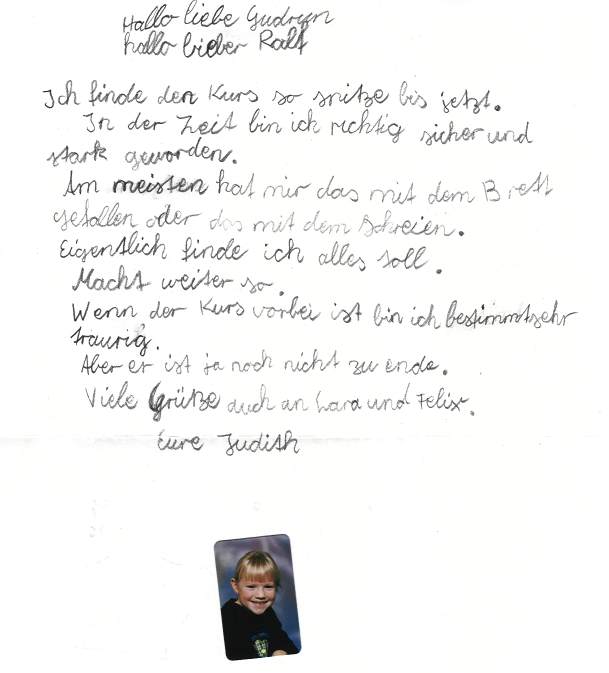 Hallo liebe Gudrun
hallo lieber Ralf
Ich finde den Kurs so spitze bis jetzt.
In der Zeit bin ich richtig sicher und
stark geworden.
Am meisten hat mir das mit dem Brett
gefallen oder das mit dem schreien.
Eigentlich finde ich alles toll.
Macht weiter so.
Wenn der Kurs vorbei ist bin ich bestimmtsehr
traurig.
Aber er ist ja noch nicht zu ende.
Viele Grütze auch an Lara und Felix.
Eure Judith